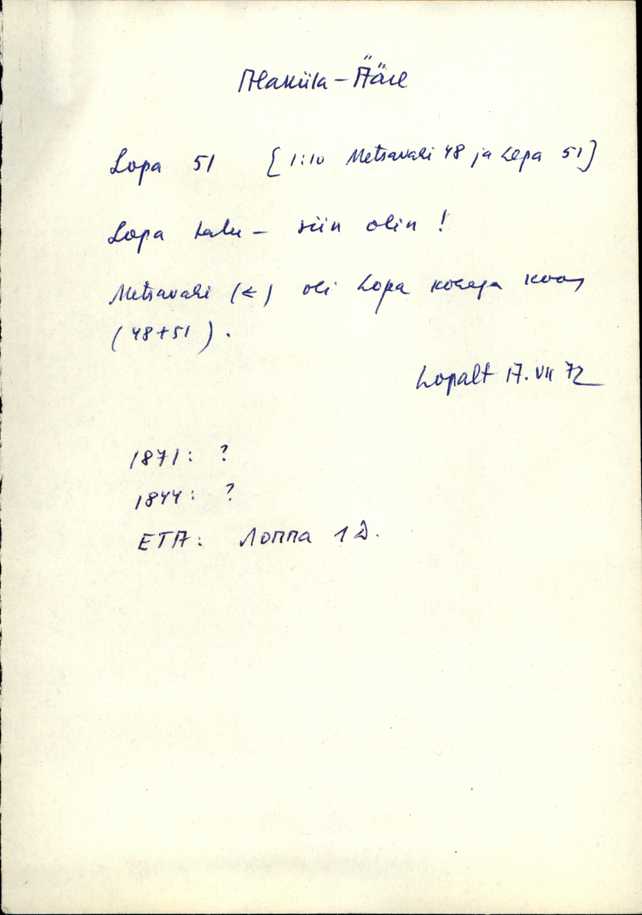 Alaküla-Ääre
Lopa 51 [1:10 Metsavahi 48 ja Lepa 51]
Lopa talu - siin olin !
Metsavahi (←) oli Lopa kohaga koos
(48+51).
Lopalt 17. VII 72
1871: ?
1844: ?
ETA: Лоппа 1 Д.